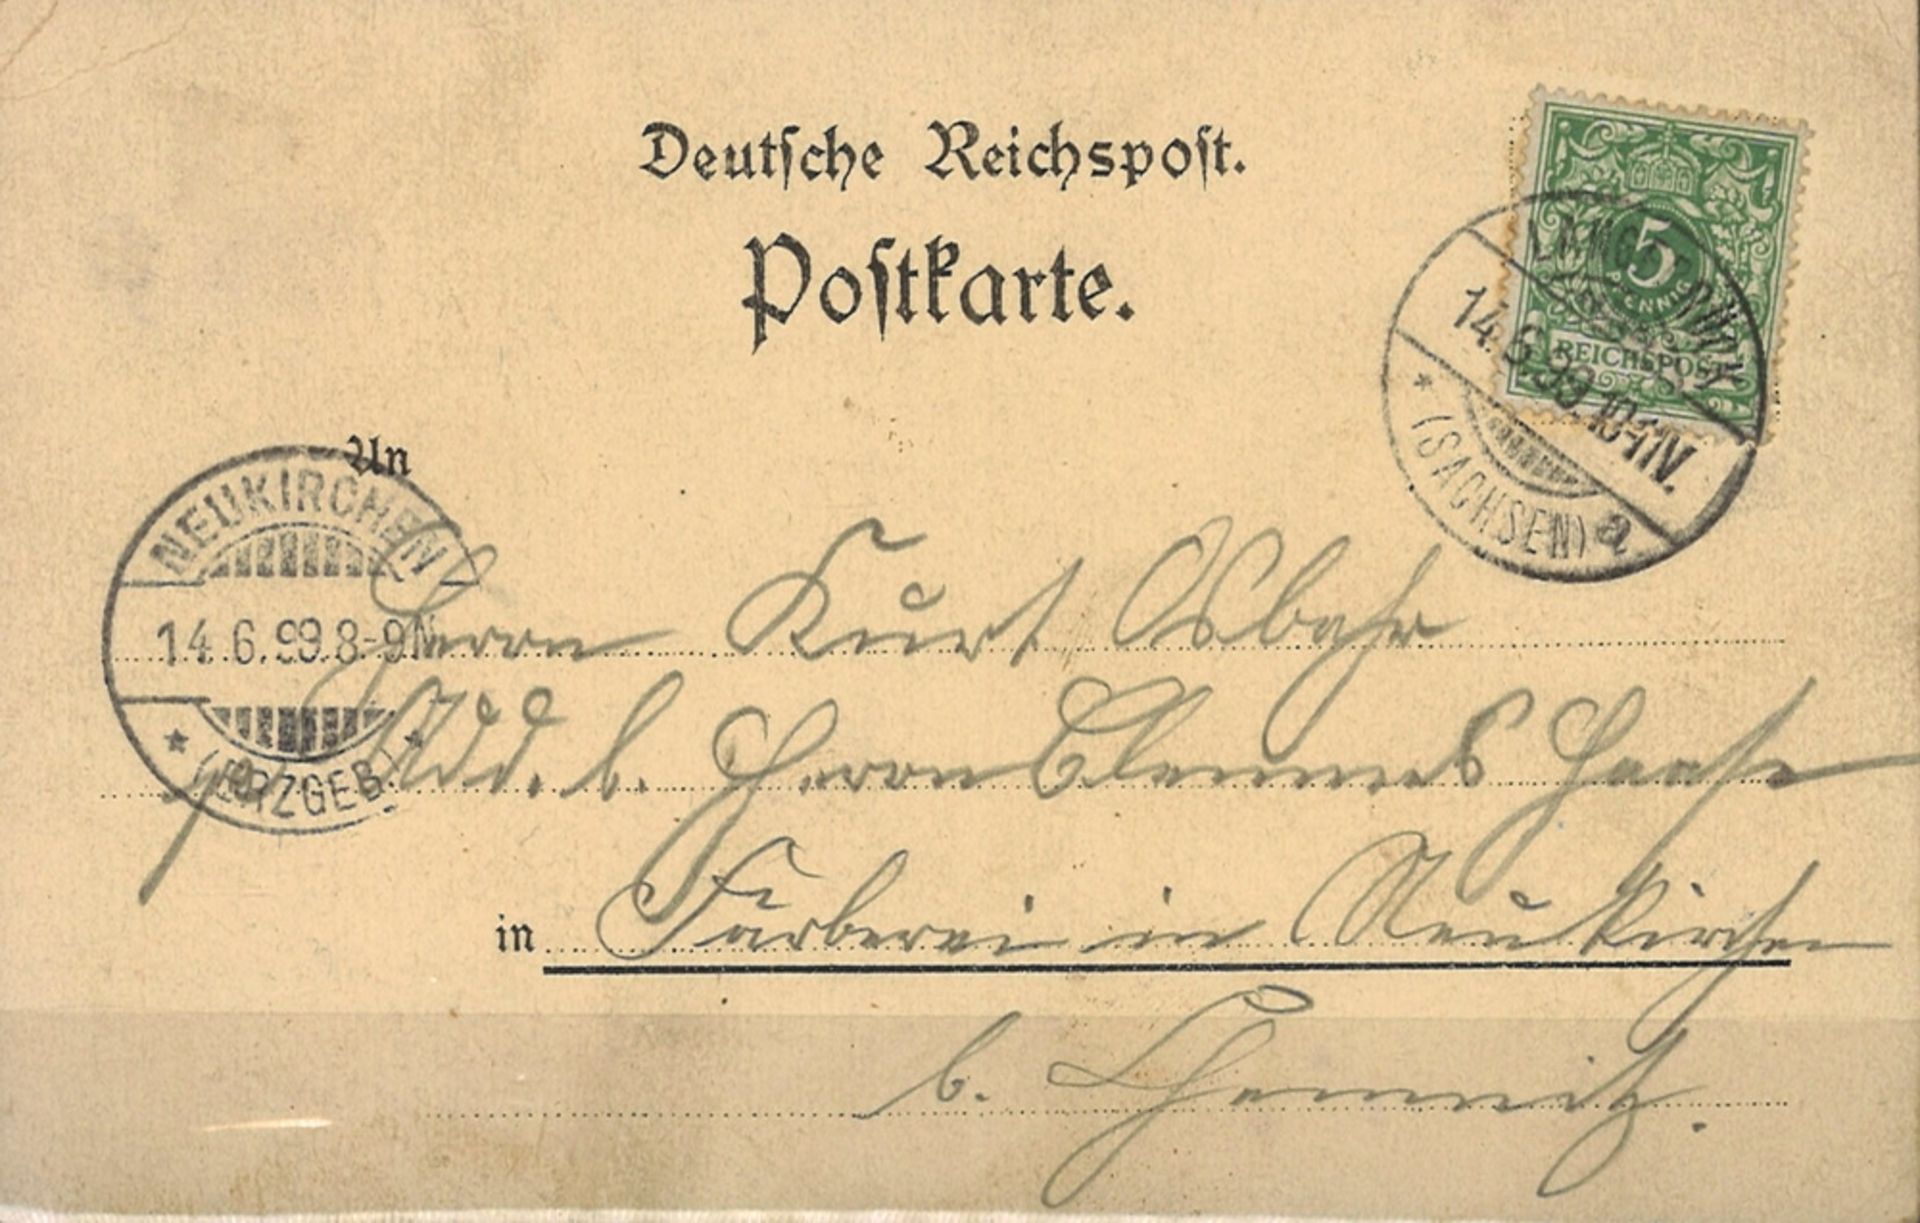 Deutsche Reichspost.
Postkarte.
5
PFENNIG
REICHSPOST
LANGEBRÜCK
14.6.99.10-11V.
(SACHSEN) a
An
NEUKIRCHEN
14.6.99.8-9N
(ERZGEB.)
Herrn Kurt Osbahr
Add. b. Herrn Clemens Haase
in Färberei in Neukirchen
b. Chemnitz.